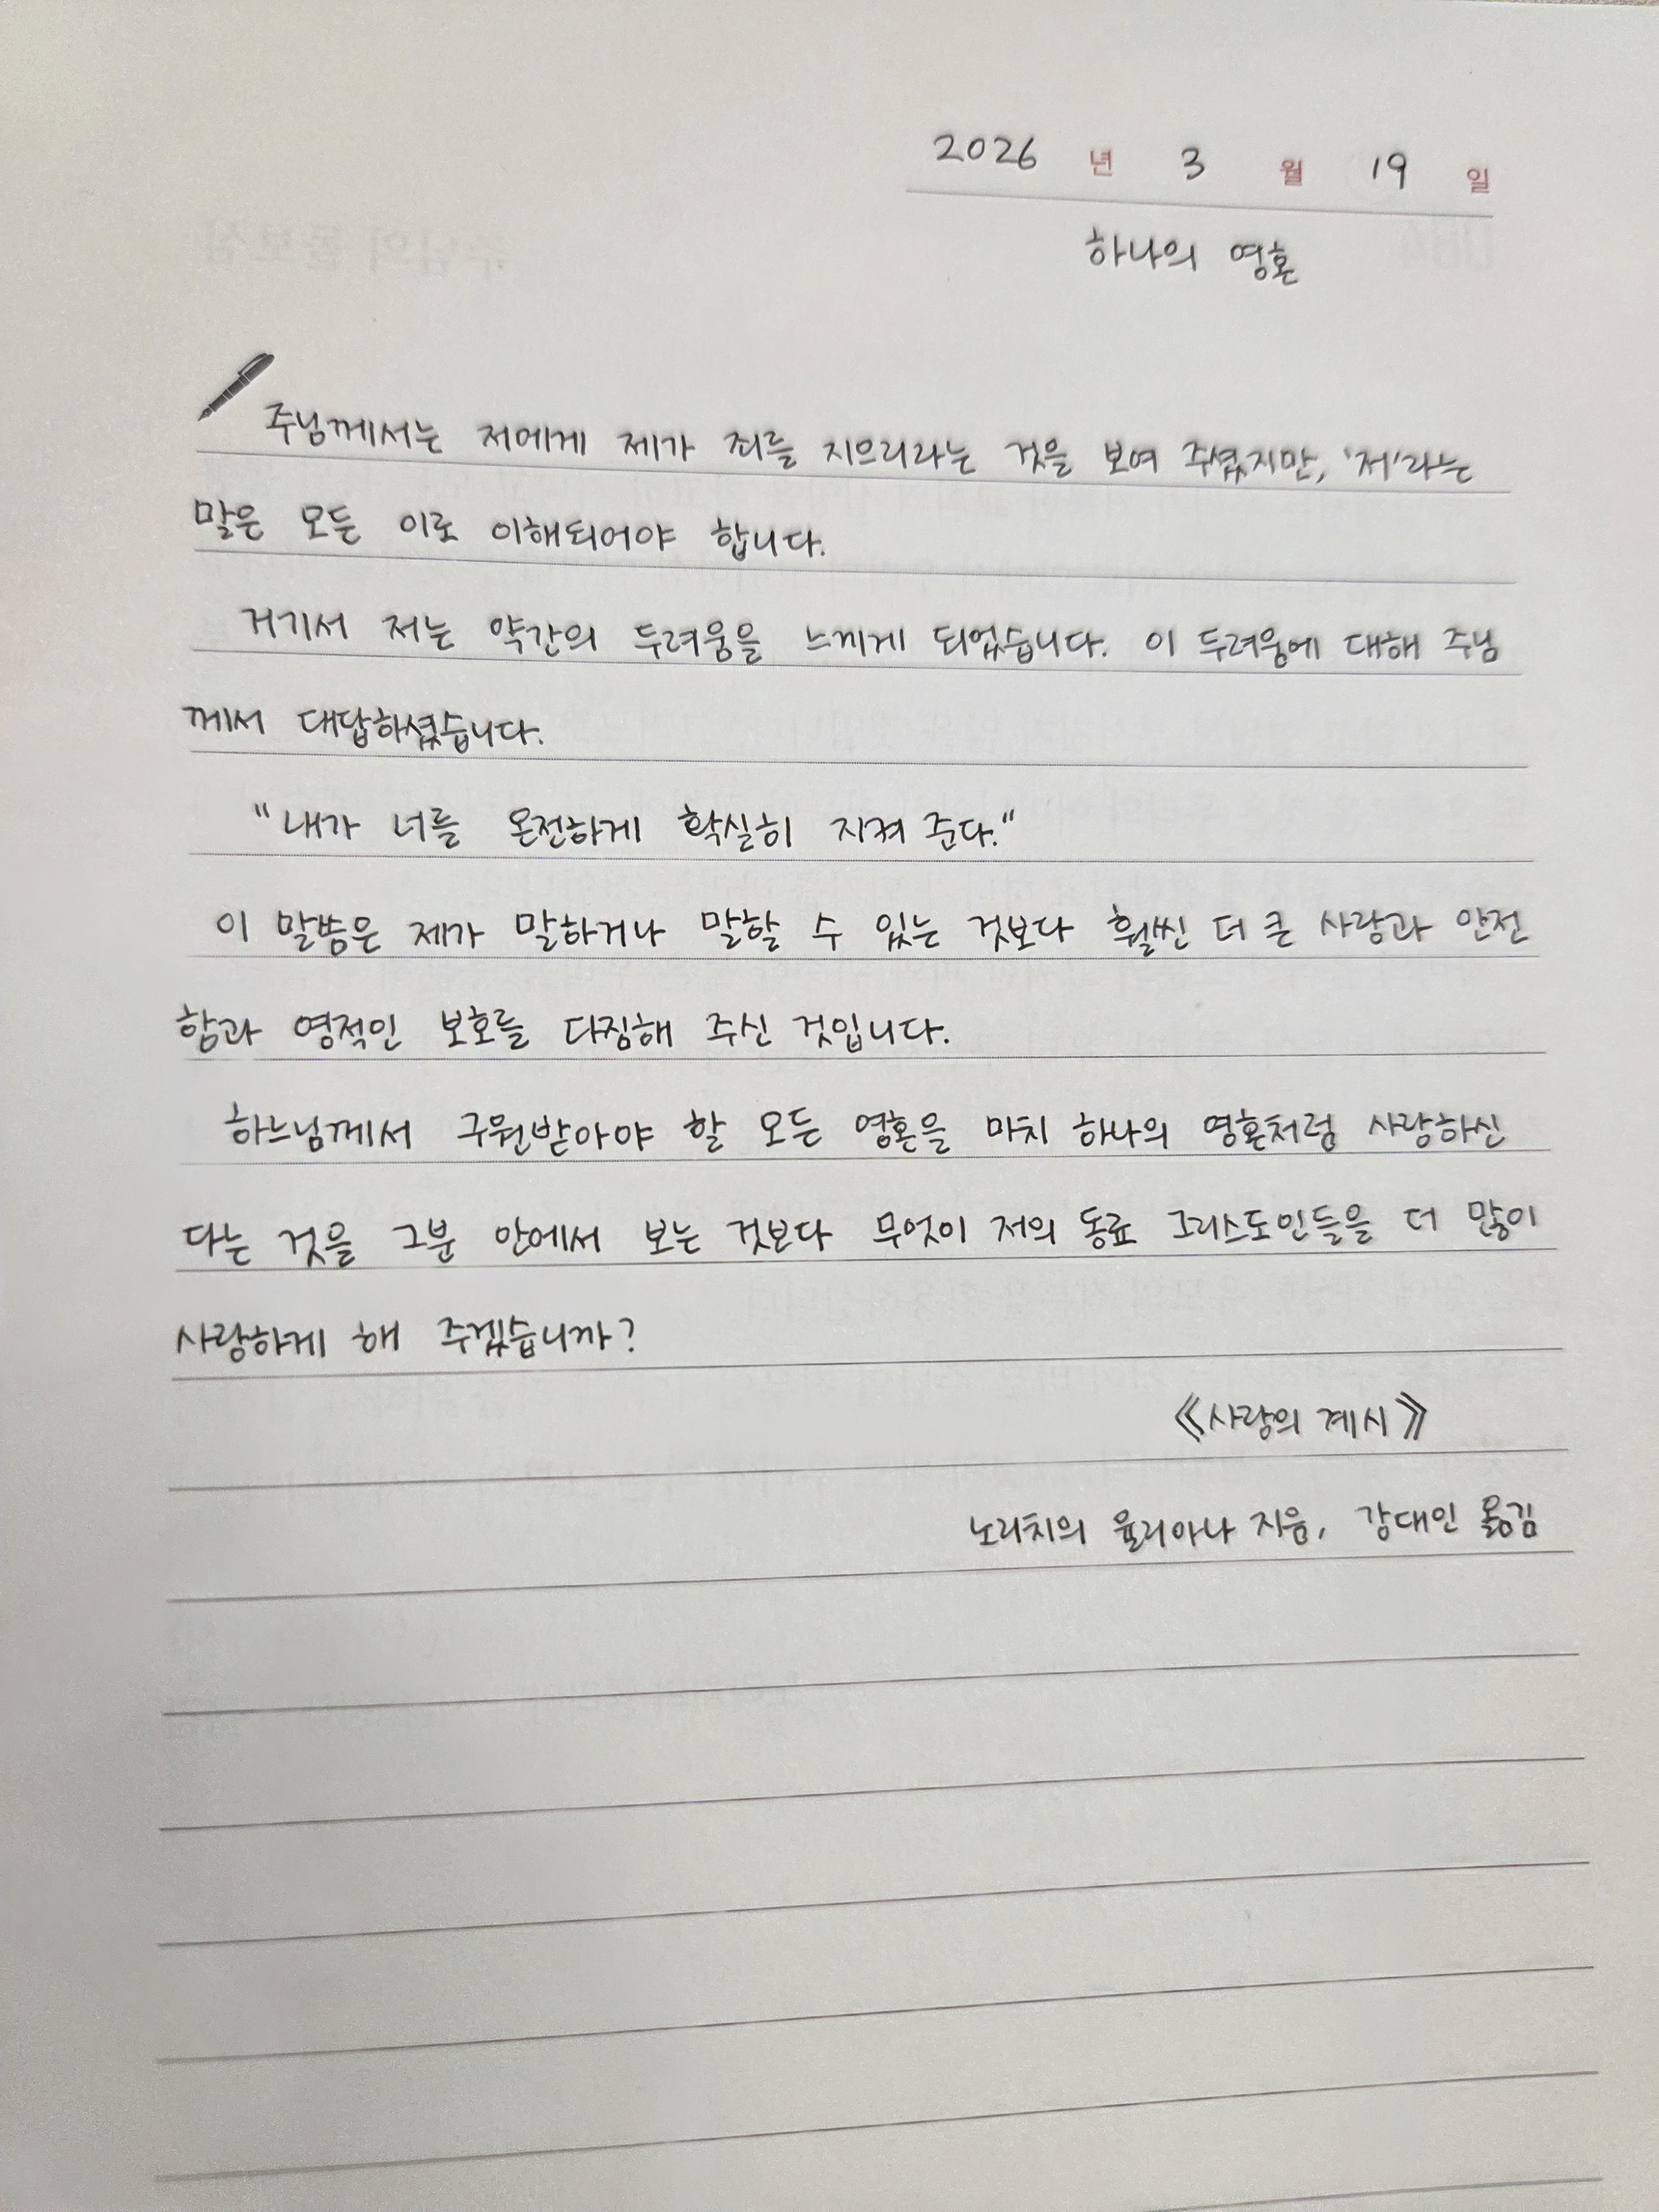 2026 년 3 월 19 일
하나의 영혼
주님께서는 저에게 제가 죄를 지으리라는 것을 보여 주셨지만, '저'라는
말은 모든 이로 이해되어야 합니다.
거기서 저는 약간의 두려움을 느끼게 되었습니다. 이 두려움에 대해 주님
께서 대답하셨습니다.
"내가 너를 온전하게 확실히 지켜 준다."
이 말씀은 제가 말하거나 말할 수 있는 것보다 훨씬 더 큰 사랑과 안전
함과 영적인 보호를 다짐해 주신 것입니다.
하느님께서 구원받아야 할 모든 영혼을 마치 하나의 영혼처럼 사랑하신
다는 것을 그분 안에서 보는 것보다 무엇이 저의 동료 그리스도인들을 더 많이
사랑하게 해 주겠습니까?
《사랑의 계시》
노리치의 율리아나 지음, 강대인 옮김